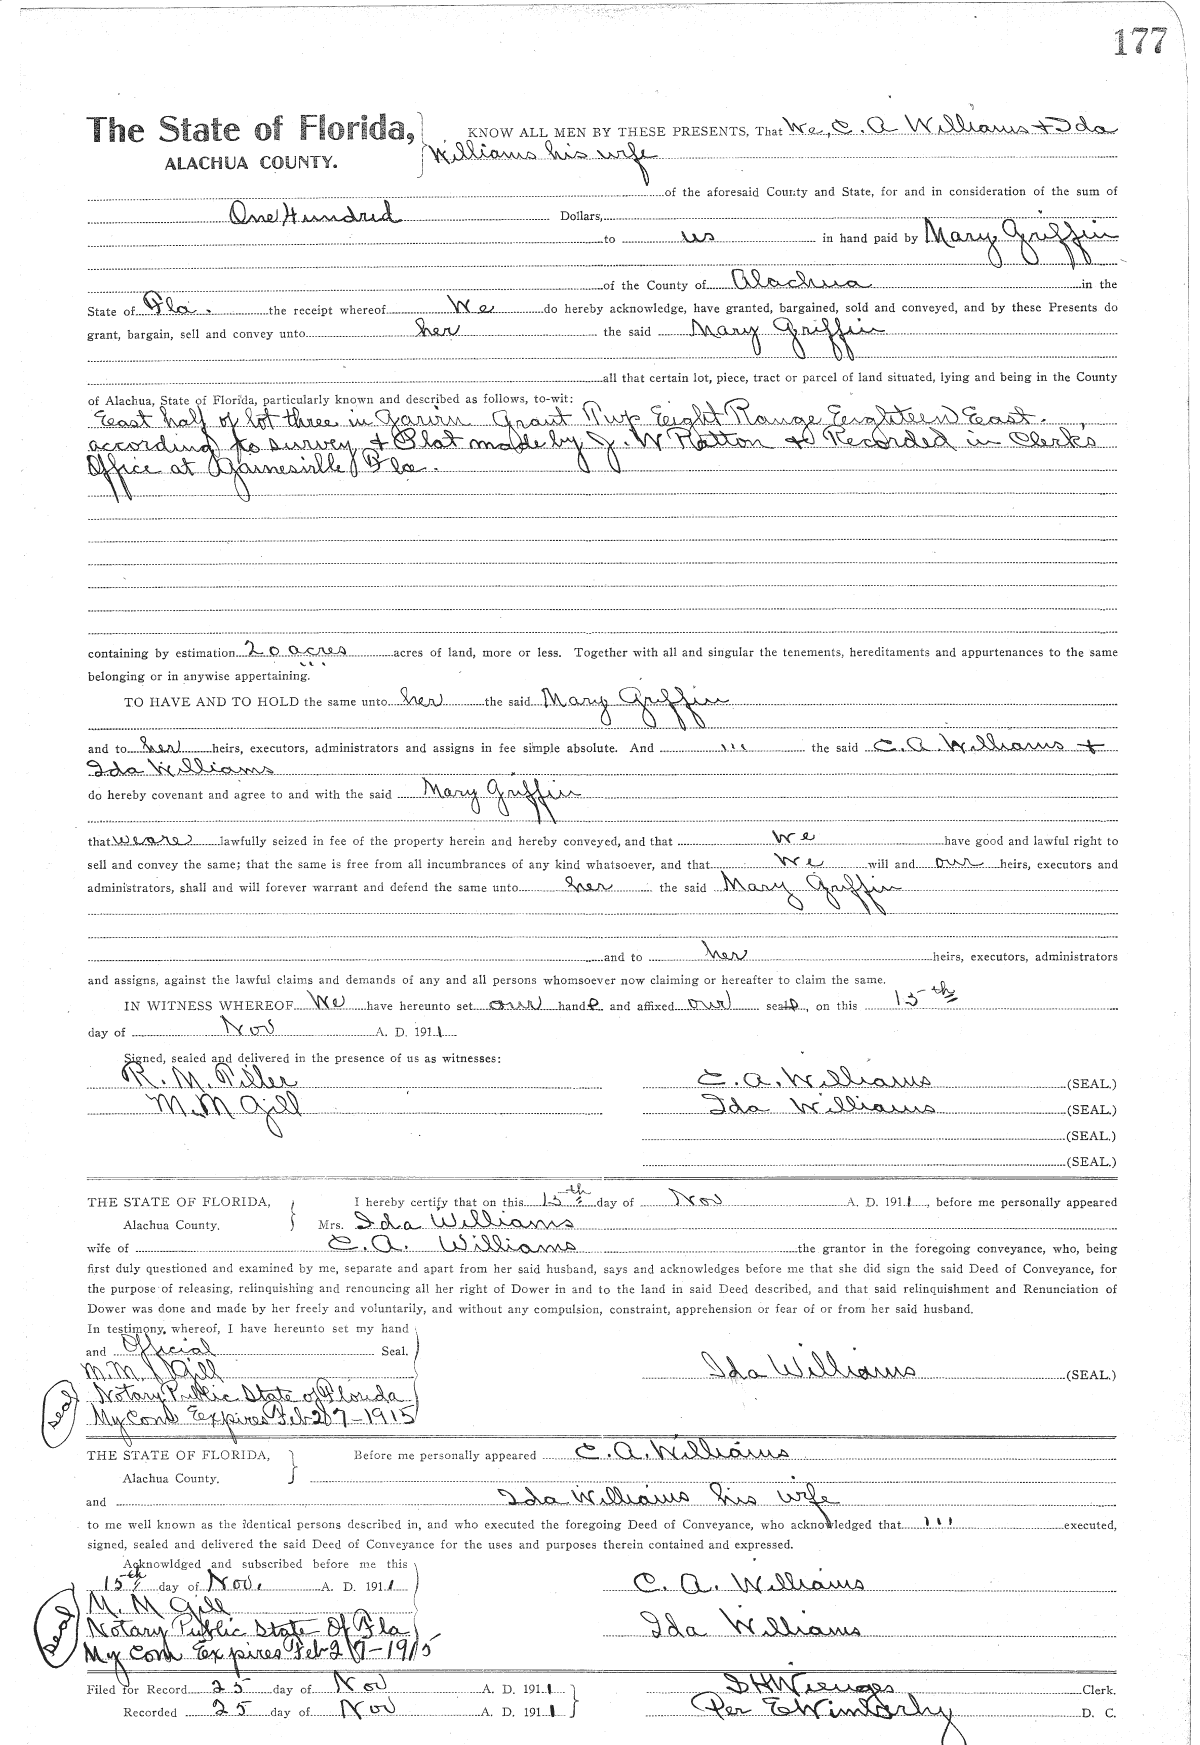 177
The State of Florida, KNOW ALL MEN BY THESE PRESENTS, That We, C. A Williams + Ida
ALACHUA COUNTY. Williams his wife
of the aforesaid County and State, for and in consideration of the sum of
One Hundred Dollars,
to us in hand paid by Mary Griffin
of the County of Alachua in the
State of Fla. the receipt whereof We do hereby acknowledge, have granted, bargained, sold and conveyed, and by these Presents do
grant, bargain, sell and convey unto her the said Mary Griffin
all that certain lot, piece, tract or parcel of land situated, lying and being in the County
of Alachua, State of Florida, particularly known and described as follows, to-wit:
East half of lot three in Grant Twp Eight Range Eighteen East.
according to survey + Plat made by J. W + Recorded in Clerks
Office at Gainesville Fla.
containing by estimation 20 acres acres of land, more or less. Together with all and singular the tenements, hereditaments and appurtenances to the same
belonging or in anywise appertaining.
TO HAVE AND TO HOLD the same unto her the said Mary Griffin
and to her heirs, executors, administrators and assigns in fee simple absolute. And ''' the said C. A. Williams +
Ida Williams
do hereby covenant and agree to and with the said Mary Griffin
that we are lawfully seized in fee of the property herein and hereby conveyed, and that We have good and lawful right to
sell and convey the same; that the same is free from all incumbrances of any kind whatsoever, and that We will and our heirs, executors and
administrators, shall and will forever warrant and defend the same unto her the said Mary Griffin
and to her heirs, executors, administrators
and assigns, against the lawful claims and demands of any and all persons whomsoever now claiming or hereafter to claim the same.
IN WITNESS WHEREOF We have hereunto set our hands and affixed our seals, on this 15th
day of Nov A. D. 1911
Signed, sealed and delivered in the presence of us as witnesses:
R. M. C. A. Williams (SEAL.)
M. M Gill Ida Williams (SEAL.)
(SEAL.)
(SEAL.)
THE STATE OF FLORIDA, I hereby certify that on this 15th day of Nov A. D. 1911, before me personally appeared
Alachua County. Mrs. Ida Williams
wife of C. A. Williams the grantor in the foregoing conveyance, who, being
first duly questioned and examined by me, separate and apart from her said husband, says and acknowledges before me that she did sign the said Deed of Conveyance, for
the purpose of releasing, relinquishing and renouncing all her right of Dower in and to the land in said Deed described, and that said relinquishment and Renunciation of
Dower was done and made by her freely and voluntarily, and without any compulsion, constraint, apprehension or fear of or from her said husband.
In testimony, whereof, I have hereunto set my hand
and Official Seal.
M. M. Gill Ida Williams (SEAL)
Notary Public State of Florida
seal My Com Expires Feb 27-1915
THE STATE OF FLORIDA, Before me personally appeared C. A. Williams
Alachua County.
and Ida Williams his wife
to me well known as the identical persons described in, and who executed the foregoing Deed of Conveyance, who acknowledged that ''' executed,
signed, sealed and delivered the said Deed of Conveyance for the uses and purposes therein contained and expressed.
Acknowldged and subscribed before me this
15th day of Nov. A. D. 1911 C. A. Williams
M. M Gill
seal Notary Public State Of Fla Ida Williams
My Com Expires Feb 27-1915
Filed for Record 25 day of Nov A. D. 1911 S H Wienges Clerk.
Recorded 25 day of Nov A. D. 1911 Per E Wimberly D. C.